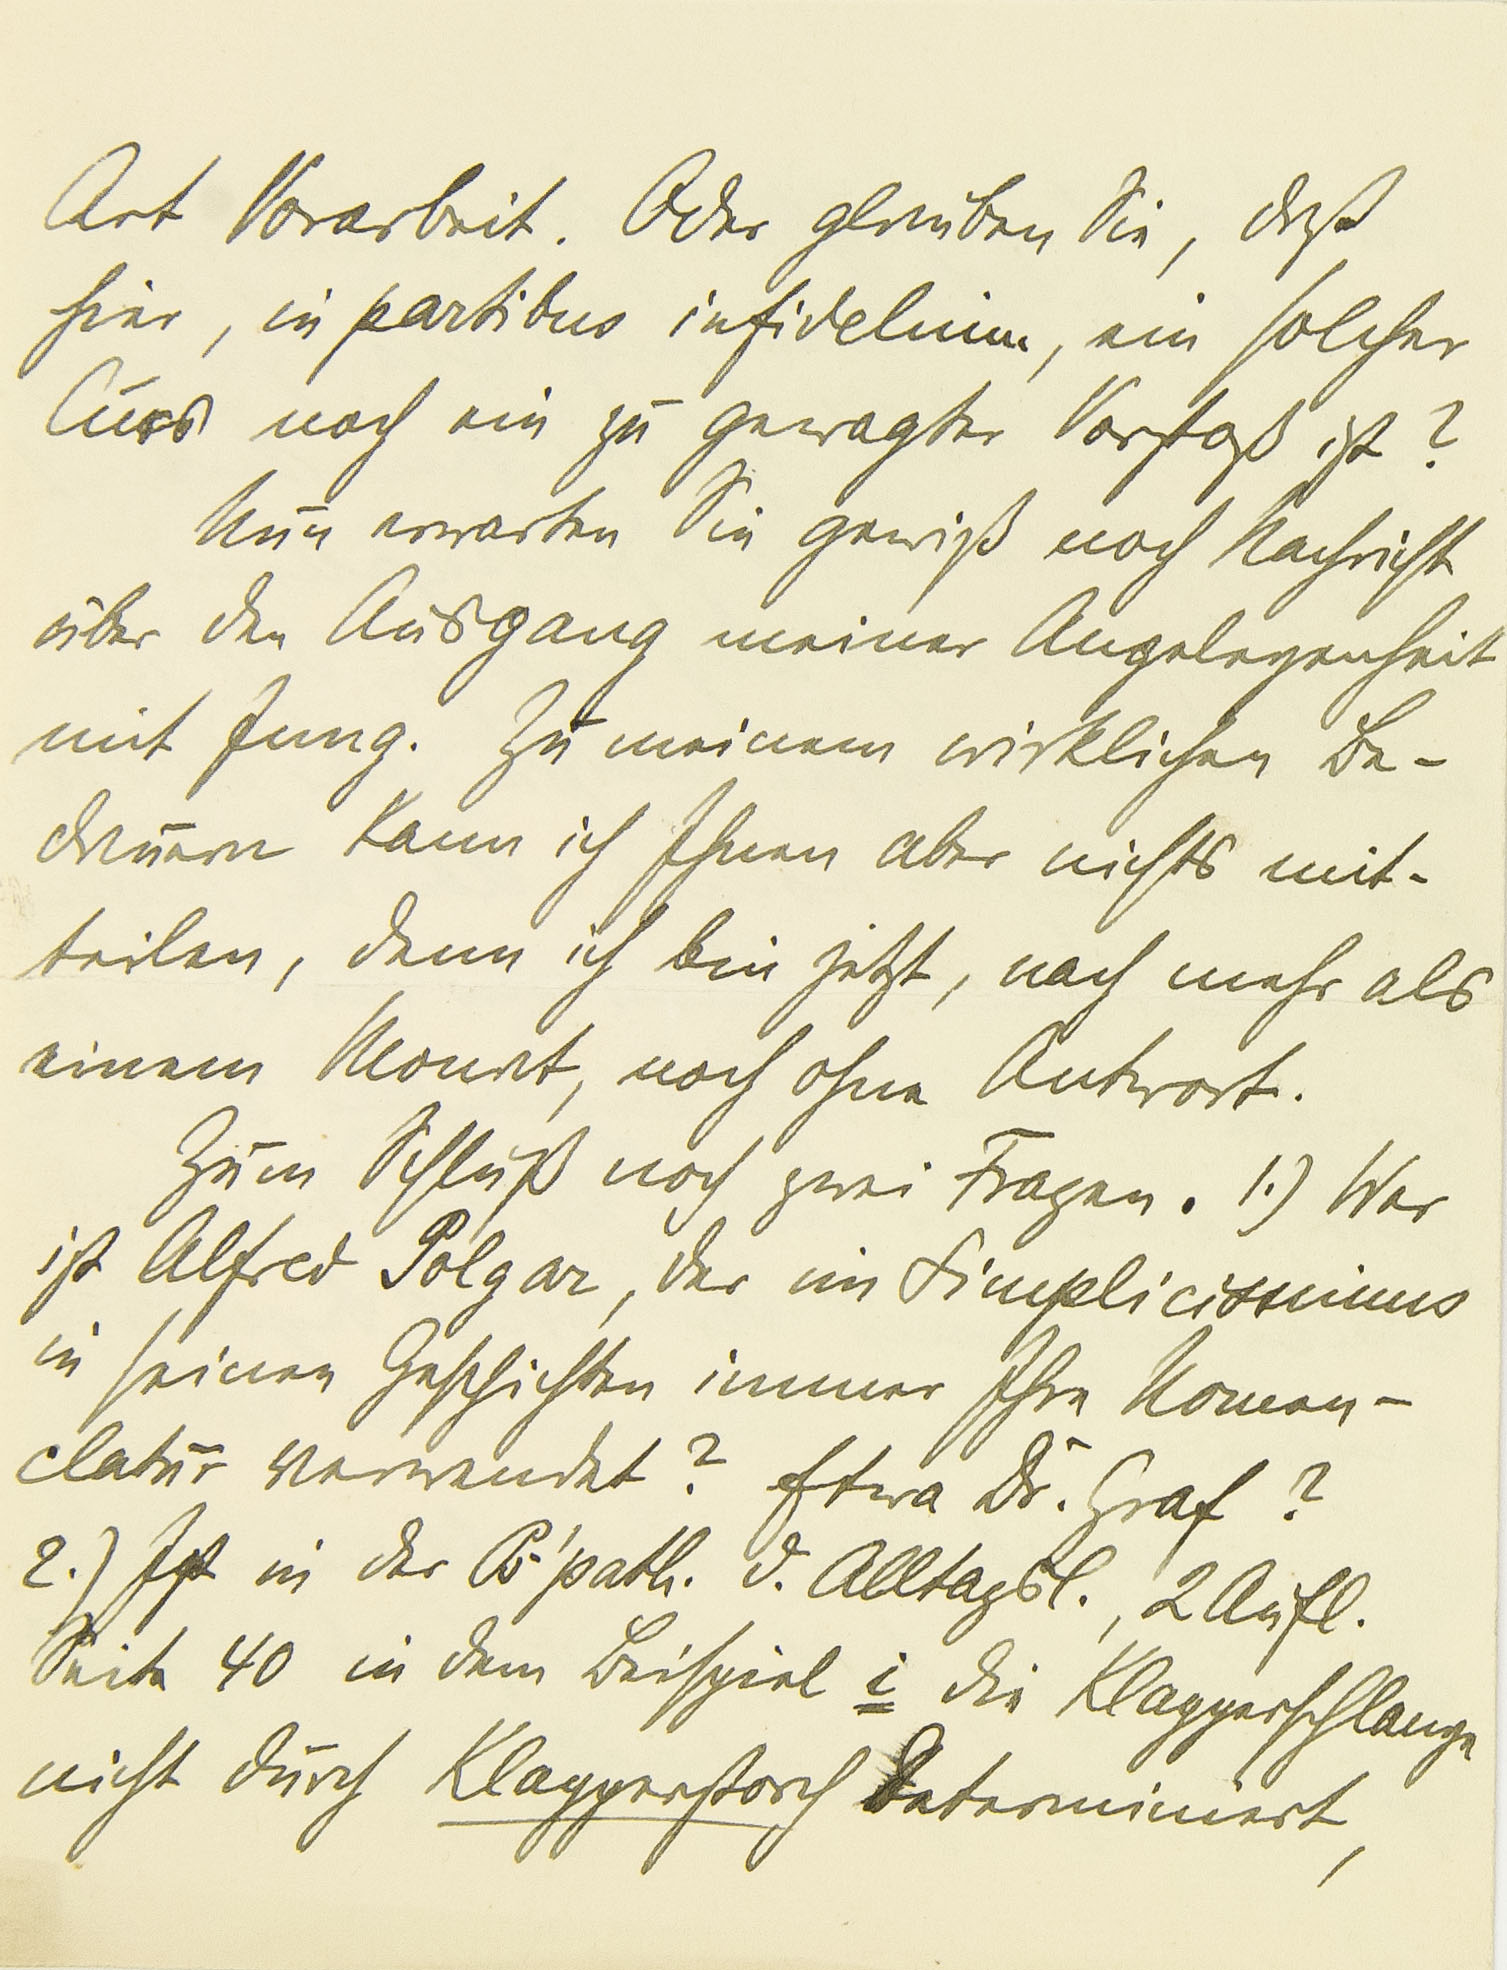 Art Vorarbeit. Oder glauben Sie, daß
hier, in partibus infidelium, ein solcher
Curs noch ein zu gewagter Vorstoß ist?
Nun erwarten Sie gewiß noch Nachricht
über den Ausgang meiner Angelegenheit
mit Jung. Zu meinem wirklichen Be-
dauern kann ich Ihnen aber nichts mit-
teilen, denn ich bin jetzt, nach mehr als
einem Monat, noch ohne Antwort.
Zum Schluß noch zwei Fragen. 1.) Wer
ist Alfred Polgar, der im Simplicissimus
in seinen Geschichten immer Ihre Nomen-
clatur verwendet? Etwa Dr. Graf?
2.) Ist in der Ps'path. d. Alltagsl., 2 Aufl.
Seite 40 in dem Beispiel i die Klapperschlange
nicht durch Klapperstorch determiniert,